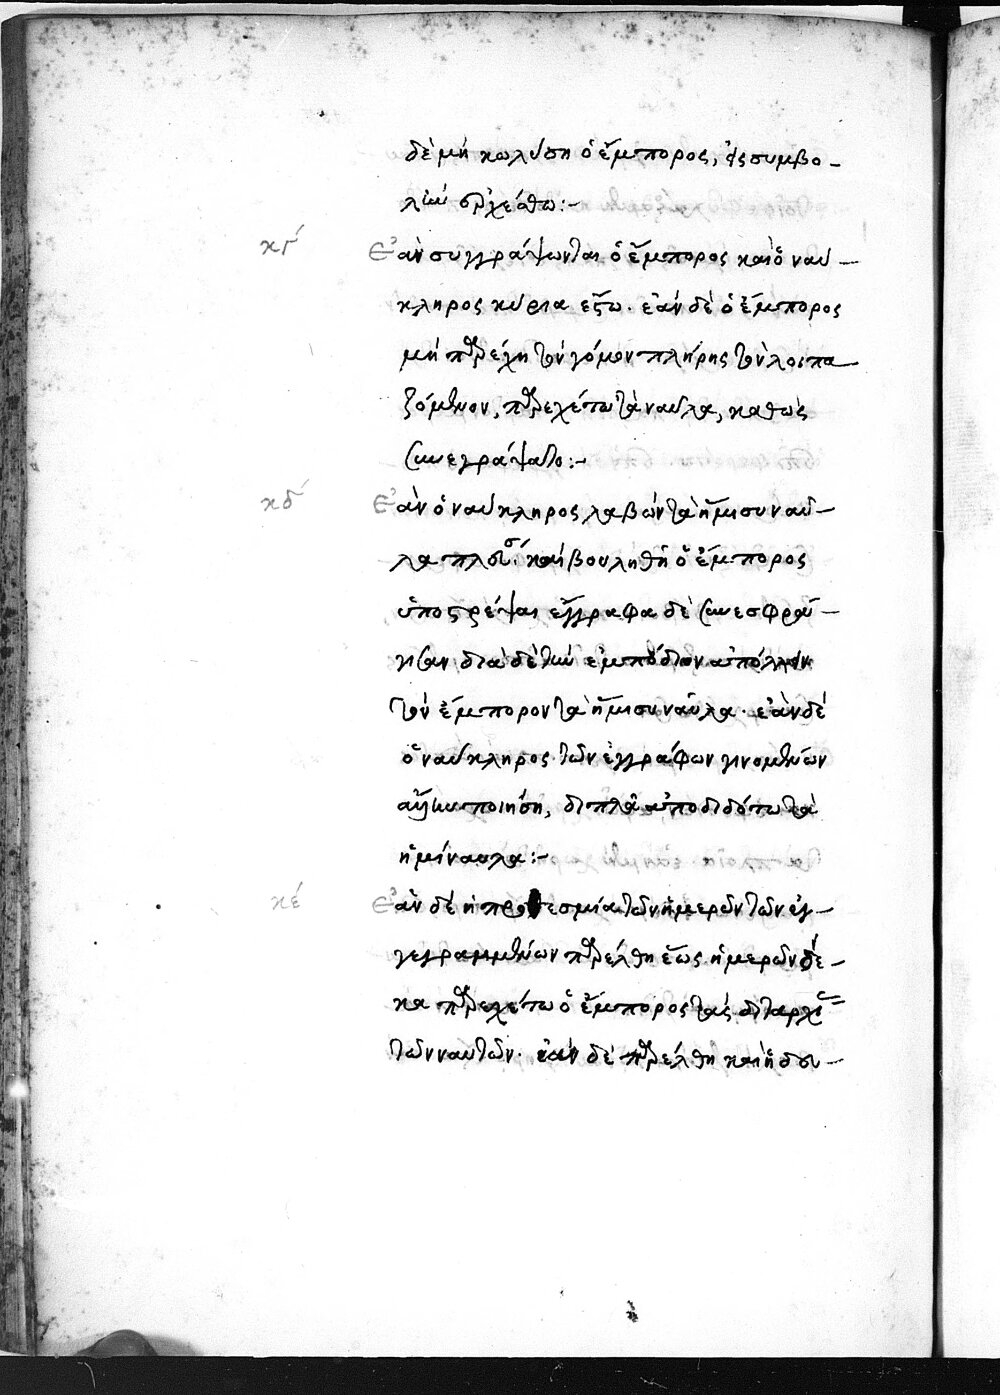 δὲ μὴ κωλύση ὁ ἔμπορος, εἰς συμβο-
λὴν ἐρχέσθω:-
κγ´ Ἐὰν συγγράψωνται ὁ ἔμπορος καὶ ὁ ναύ-
κληρος κύρια ἔστω. ἐὰν δὲ ὁ ἔμπορος
μὴ παρέχη τὸν γόμον πλήρης τὸν λοιπα-
ζόμενον, παρεχέτω τὰ ναῦλα, καθὼς
συνεγράψατο:-
κδ´ Ἐὰν ὁ ναύκληρος λαβὼν τὰ ἥμισυ ναῦ-
λα πλεύσ καὶ βουληθῆ ὁ ἔμπορος
ὑποστρέψαι ἔγγραφα δὲ συνεσφρά-
γισαν διὰ δὲ τὴν ἐμπόδιον ἀπόλλειν
τὸν ἔμπορον τὰ ἥμισυ ναῦλα. ἐὰν δὲ
ὁ ναύκληρος τῶν ἐγγράφων γινομένων
ποιήση, διπλᾶ ἀποδιδότω τὰ
ἡμίναυλα:-
κε´ Ἐὰν δὲ ἡ προθεσμία τῶν ἡμερῶν τῶν ἐγ-
γεγραμμένων παρέλθη ἕως ἡμερῶν δέ-
κα παρεχέτω ὁ ἔμπορος τὰς σιταρχί
τῶν ναυτῶν. ἐὰν δὲ παρέλθη καὶ ἡ δευ-